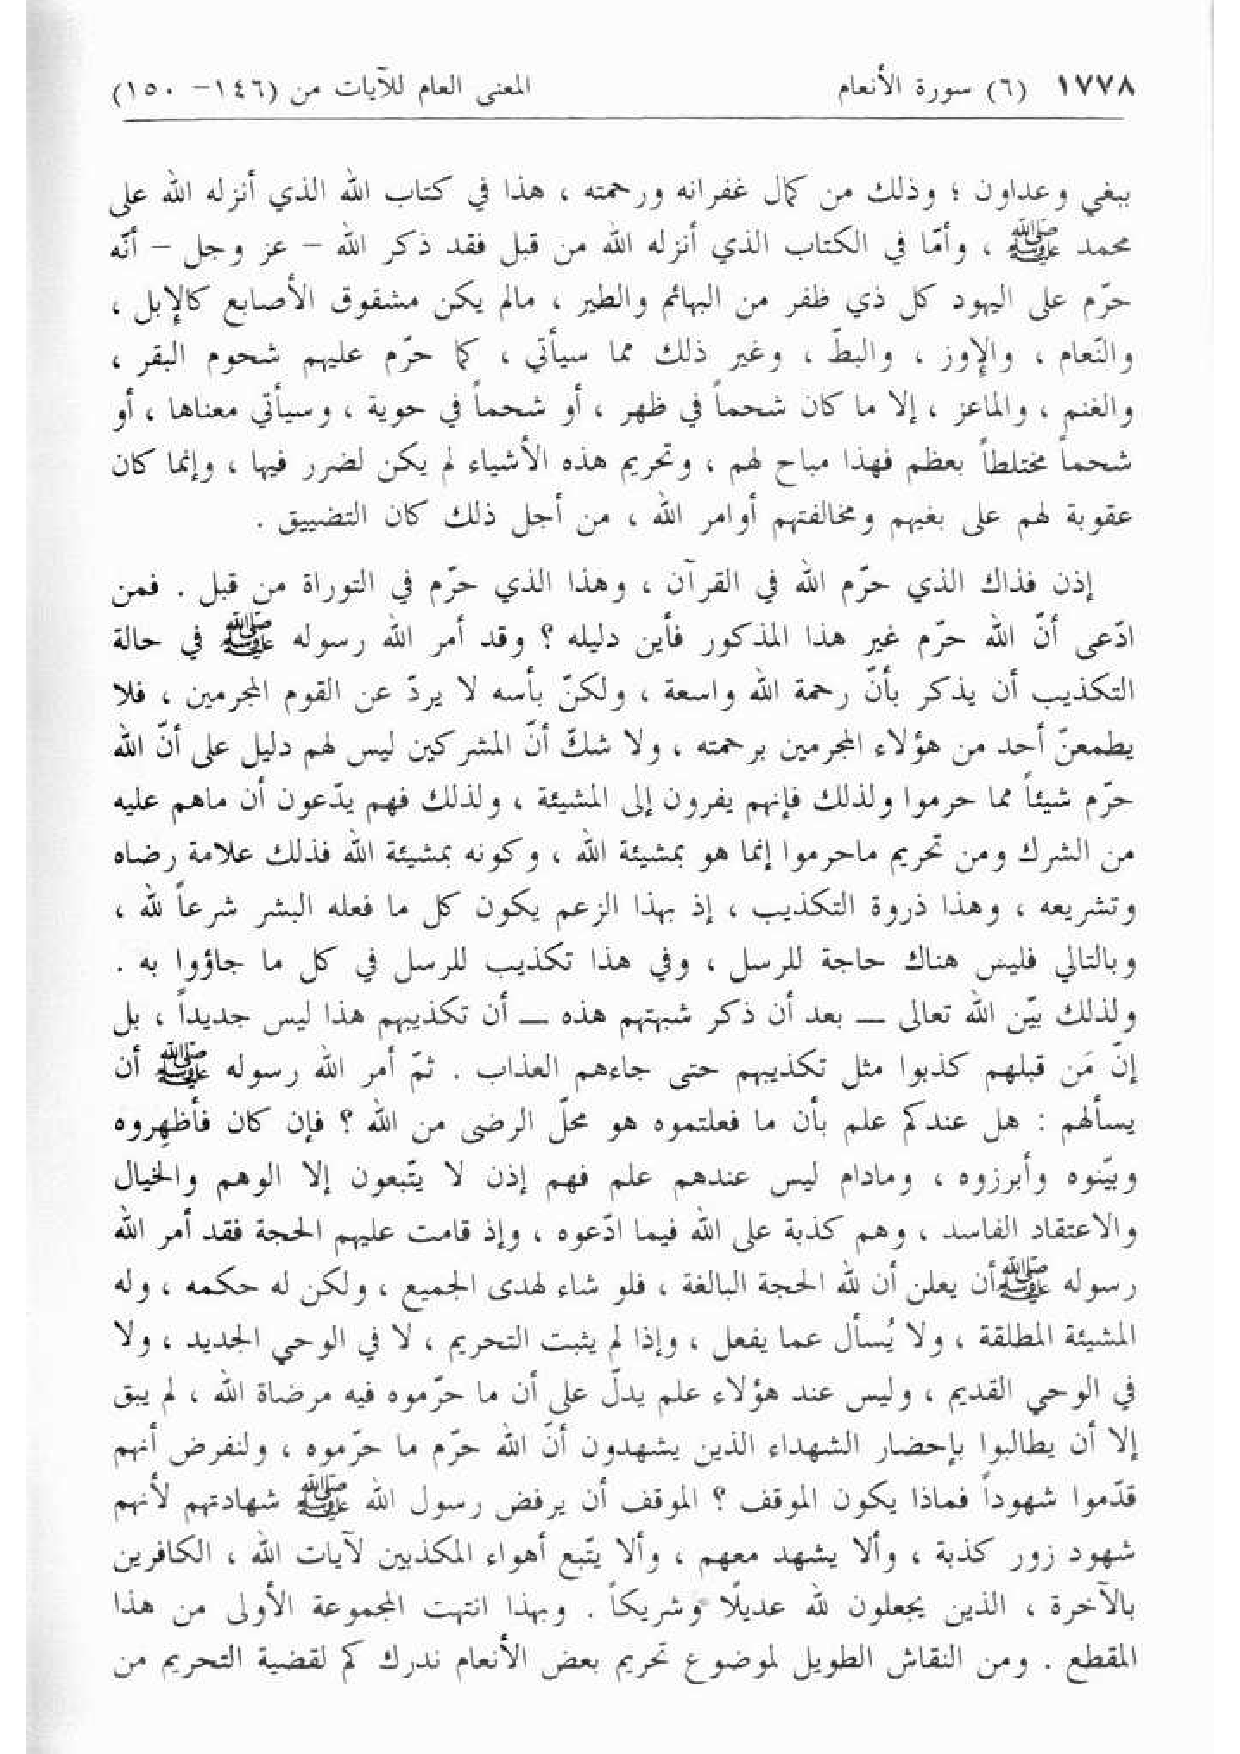 ١٧٧٨ (٦) سورة الأنعام المعنى العام للآيات من (١٤٦- ١٥٠)
ببغي وعداون ؛ وذلك من كمال غفرانه ورحمته ، هذا في كتاب الله الذي أنزله الله على
محمد ﷺ ، وأمّا في الكتاب الذي أنزله الله من قبل فقد ذكر الله - عز وجل - أنّه
حرّم على اليهود كل ذي ظفر من البهائم والطير ، مالم يكن مشقوق الأصابع كالإبل ،
والنّعام ، والإوز ، والبطّ ، وغير ذلك مما سيأتي ، كما حرّم عليهم شحوم البقر ،
والغنم ، والماعز ، إلا ما كان شحماً في ظهر ، أو شحماً في حوية ، وسيأتي معناها ، أو
شحماً مختلطاً بعظم فهذا مباح لهم ، وتحريم هذه الأشياء لم يكن لضرر فيها ، وإنما كان
عقوبة لهم على بغيهم ومخالفتهم أوامر الله ، من أجل ذلك كان التضييق .
إذن فذاك الذي حرّم الله في القرآن ، وهذا الذي حرّم في التوراة من قبل . فمن
ادّعى أنّ الله حرّم غير هذا المذكور فأين دليله ؟ وقد أمر الله رسوله ﷺ في حالة
التكذيب أن يذكر بأنّ رحمة الله واسعة ، ولكنّ بأسه لا يردّ عن القوم المجرمين ، فلا
يطمعنّ أحد من هؤلاء المجرمين برحمته ، ولا شكّ أنّ المشركين ليس لهم دليل على أنّ الله
حرّم شيئاً مما حرموا ولذلك فإنهم يفرون إلى المشيئة ، ولذلك فهم يدّعون أن ماهم عليه
من الشرك ومن تحريم ماحرموا إنما هو بمشيئة الله ، وكونه بمشيئة الله فذلك علامة رضاه
وتشريعه ، وهذا ذروة التكذيب ، إذ بهذا الزعم يكون كل ما فعله البشر شرعاً لله ،
وبالتالي فليس هناك حاجة للرسل ، وفي هذا تكذيب للرسل في كل ما جاؤوا به .
ولذلك بيّن الله تعالى ـ بعد أن ذكر شبهتهم هذه ـ أن تكذيبهم هذا ليس جديداً ، بل
إنّ مَن قبلهم كذبوا مثل تكذيبهم حتى جاءهم العذاب . ثمّ أمر الله رسوله ﷺ أن
يسألهم : هل عندكم علم بأن ما فعلتموه هو محلّ الرضى من الله ؟ فإن كان فأظهِروه
وبيّنوه وأبرزوه ، ومادام ليس عندهم علم فهم إذن لا يتّبعون إلا الوهم والخيال
والاعتقاد الفاسد ، وهم كذبة على الله فيما ادّعوه ، وإذ قامت عليهم الحجة فقد أمر الله
رسوله ﷺ أن يعلن أن لله الحجة البالغة ، فلو شاء لهدى الجميع ، ولكن له حكمه ، وله
المشيئة المطلقة ، ولا يُسأل عما يفعل ، وإذا لم يثبت التحريم ، لا في الوحي الجديد ، ولا
في الوحي القديم ، وليس عند هؤلاء علم يدلّ على أن ما حرّموه فيه مرضاة الله ، لم يبق
إلا أن يطالبوا بإحضار الشهداء الذين يشهدون أنّ الله حرّم ما حرّموه ، ولنفرض أنهم
قدّموا شهوداً فماذا يكون الموقف ؟ الموقف أن يرفض رسول الله ﷺ شهادتهم لأنهم
شهود زور كذبة ، وألا يشهد معهم ، وألا يتّبع أهواء المكذبين لآيات الله ، الكافرين
بالآخرة ، الذين يجعلون لله عديلًا وشريكاً . وبهذا انتهت المجموعة الأولى من هذا
المقطع . ومن النقاش الطويل لموضوع تحريم بعض الأنعام ندرك كم لقضية التحريم من